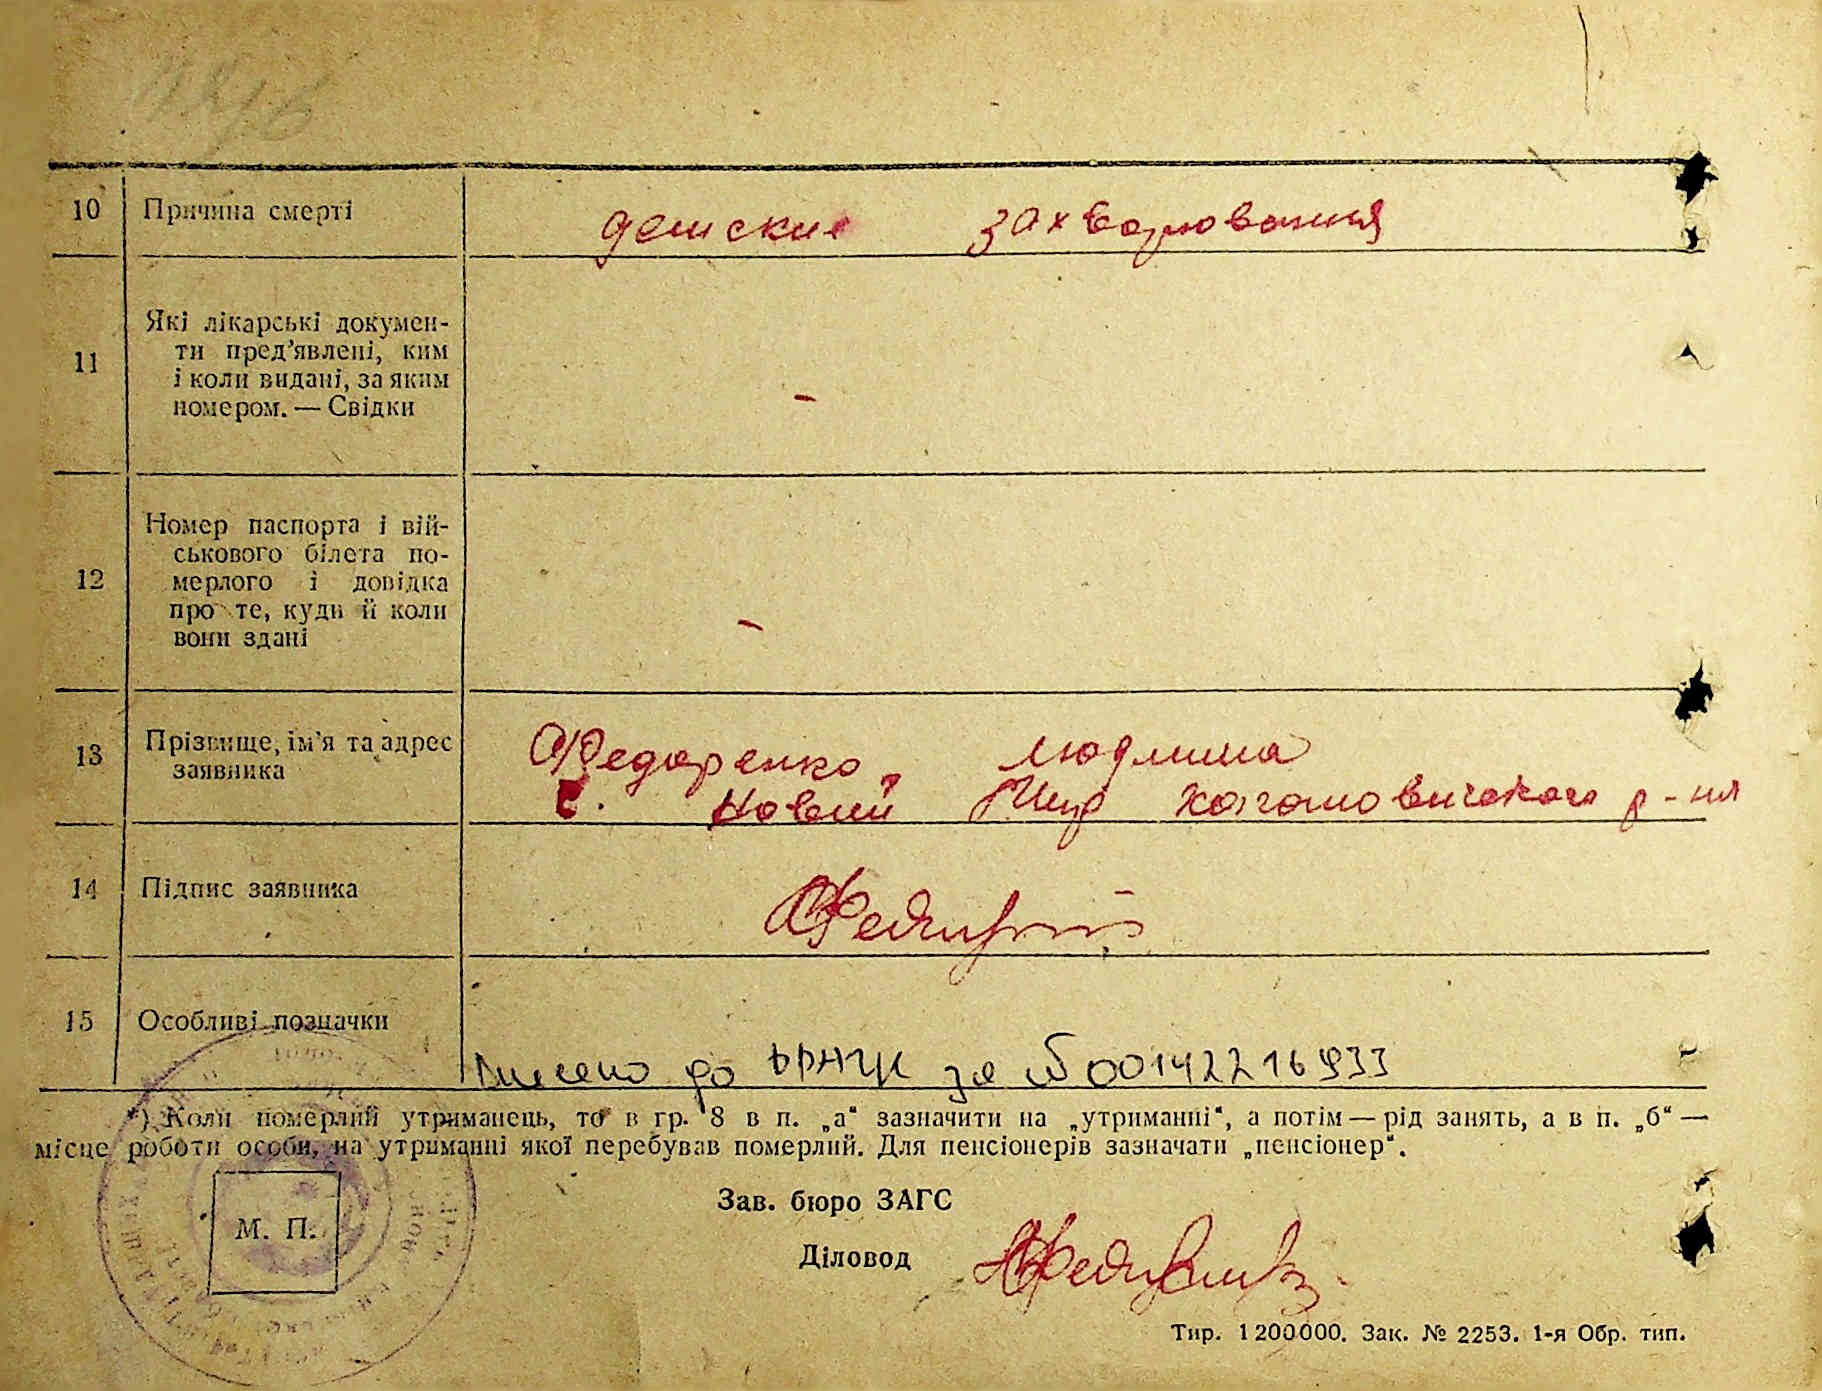 10 Причина смерти детские захворювання
11 Які лікарські докумен-
ти пред’явлені, ким
і коли видані, за яким
номером. — Свідки
-
12 Номер паспорта і вій-
ськового білета по-
мерлого і довідка
про те, куди й коли
вони здані
-
13 Прізвище, ім’я та адрес
заявника
Федоренко Людмила
с. Новий Мир Кагановичского р-на
14 Підпис заявника
15 Особливі позначки
Внесено до ДРАЦС за № 00142216933
*) Коли померлий утриманець, то в гр. 8 в п. „а“ зазначити на „утриманні“, а потім — рід занять, а в п. „б“ —
місце роботи особи, на утриманні якої перебував померлий. Для пенсіонерів зазначати „пенсіонер“.
М. П.
Зав. бюро ЗАГС
Діловод
Тир. 1200000. Зак. № 2253. 1-я Обр. тип.